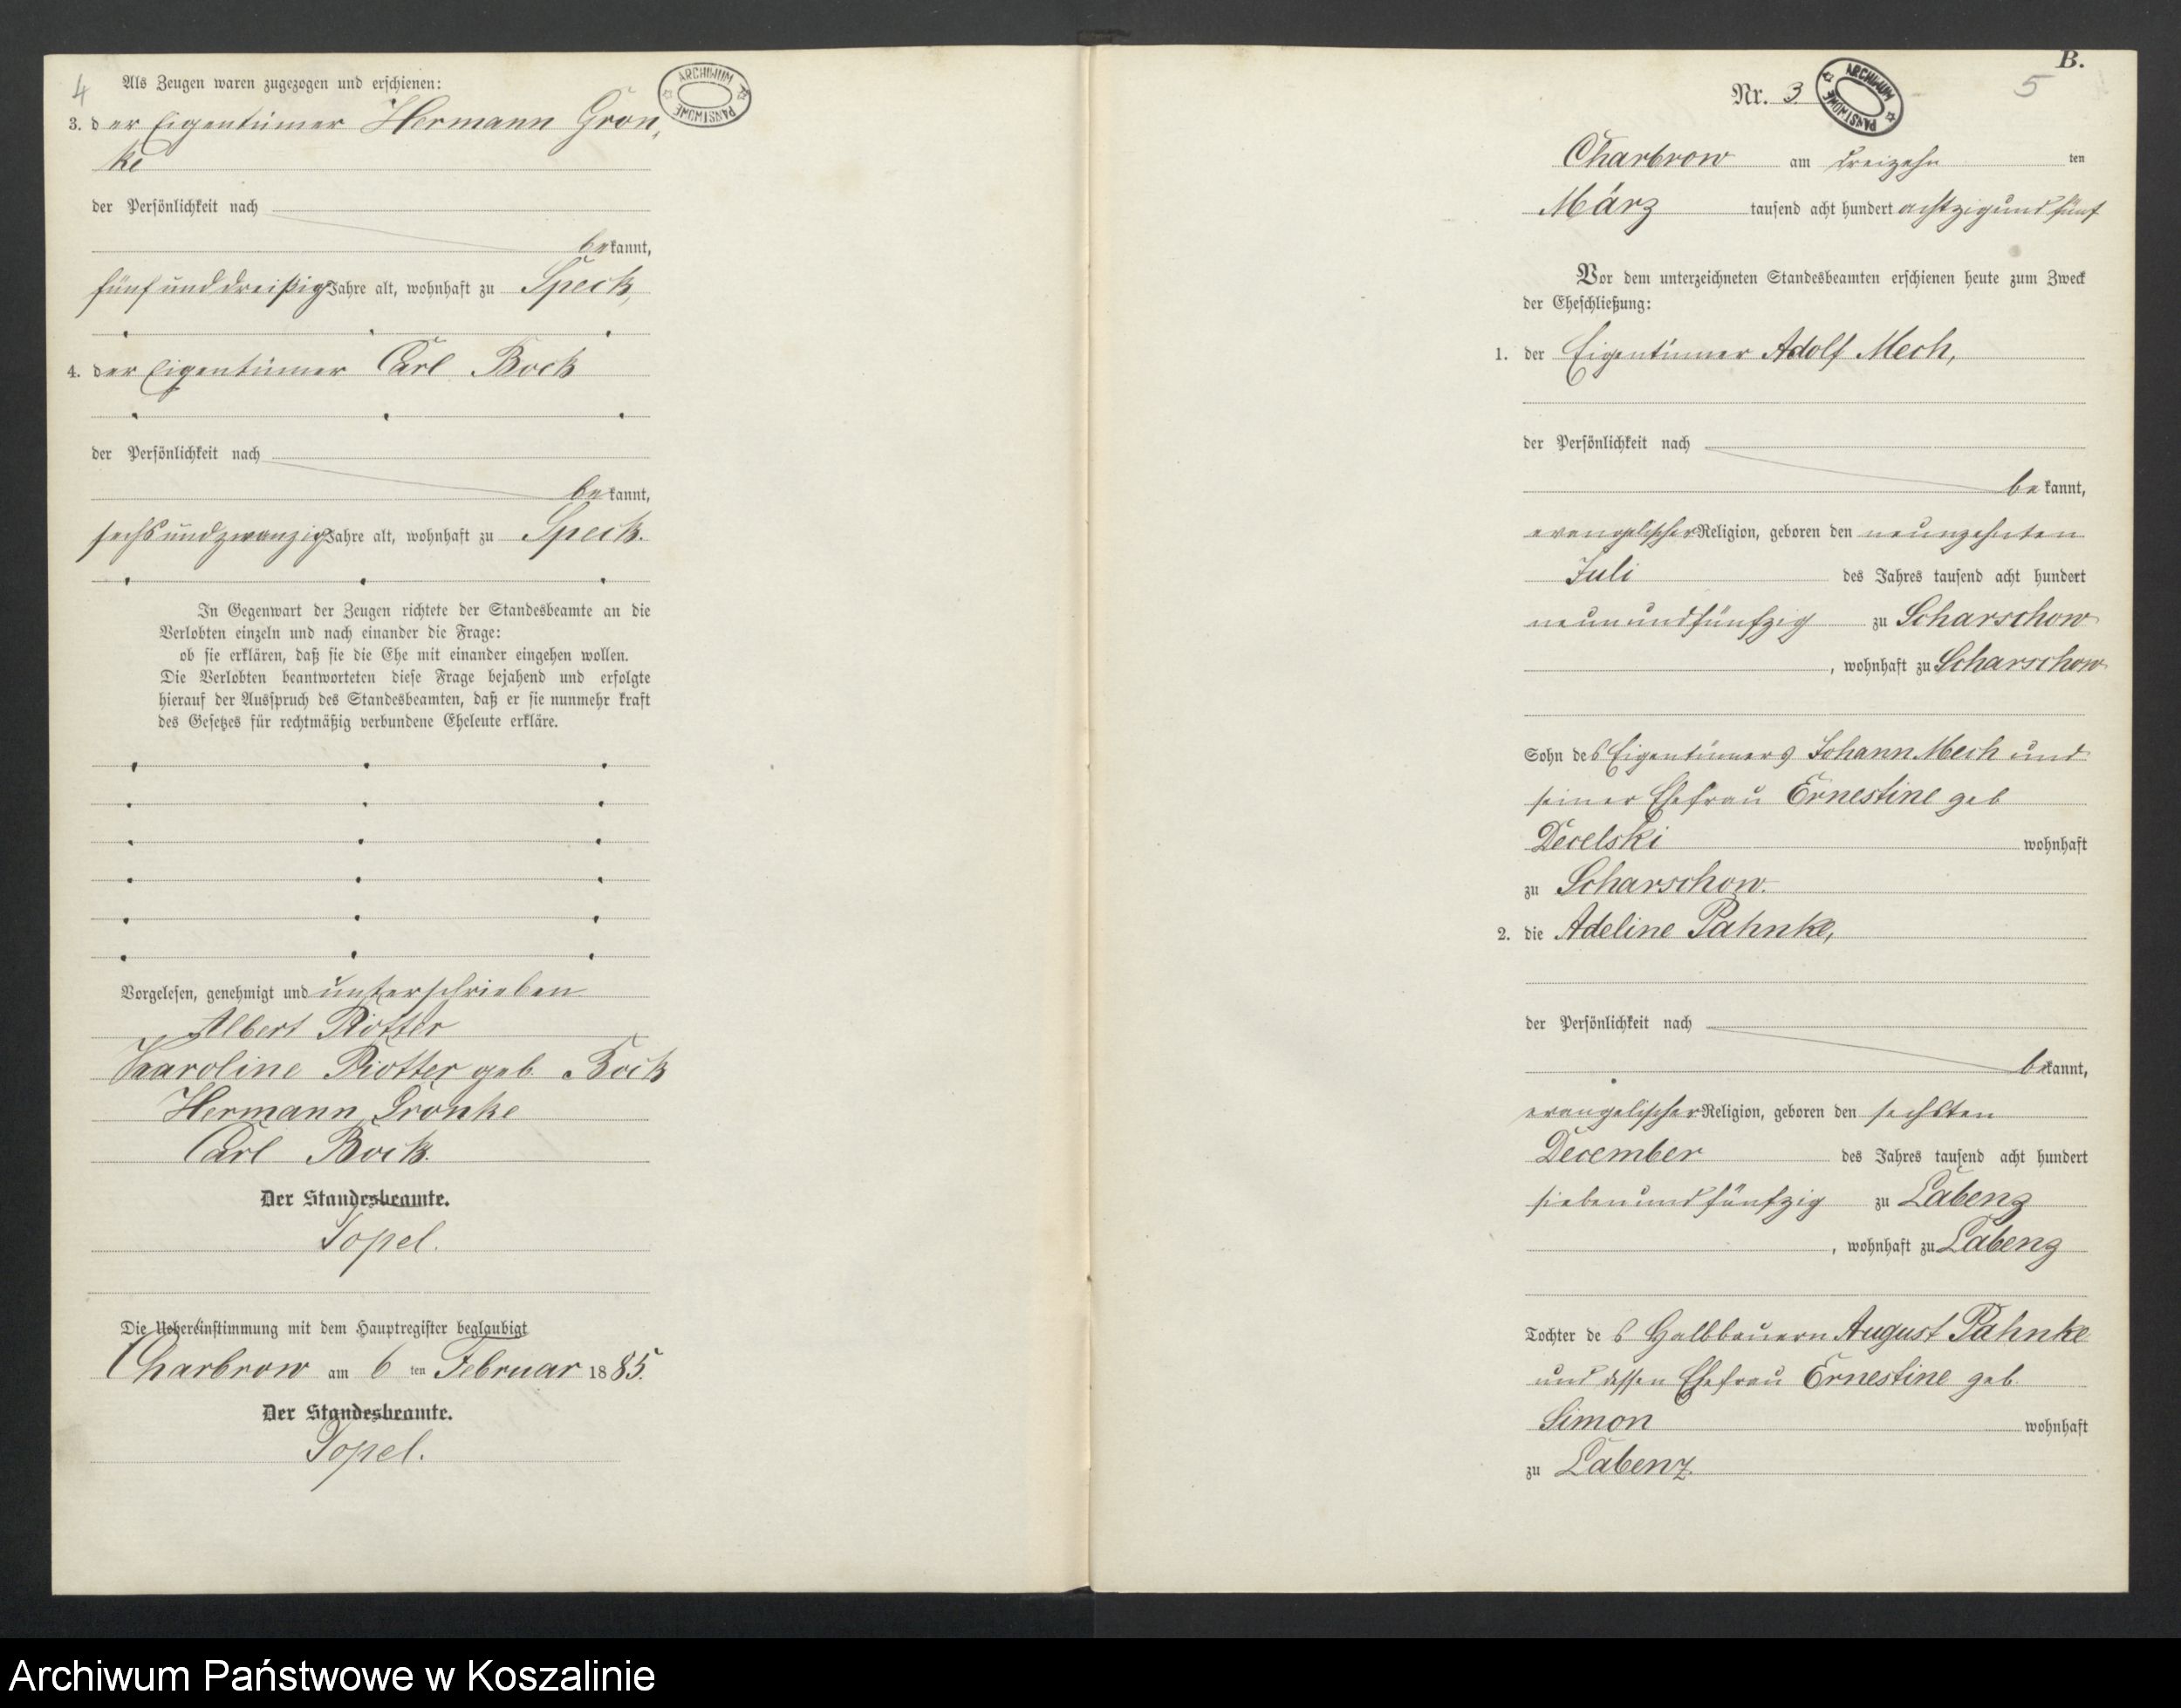 4
Als Zeugen waren zugezogen und erschienen:
ARCHIWUM PAŃSTWOWE
3. der Eigentümer Hermann Gron-
ke
der Persönlichkeit nach
bekannt,
fünfunddreißig Jahre alt, wohnhaft zu Speck,
4. der Eigentümer Carl Bock
der Persönlichkeit nach
bekannt,
sechsundzwanzig Jahre alt, wohnhaft zu Speck.
In Gegenwart der Zeugen richtete der Standesbeamte an die
Verlobten einzeln und nach einander die Frage:
ob sie erklären, daß sie die Ehe mit einander eingehen wollen.
Die Verlobten beantworteten diese Frage bejahend und erfolgte
hierauf der Ausspruch des Standesbeamten, daß er sie nunmehr kraft
des Gesetzes für rechtmäßig verbundene Eheleute erkläre.
Vorgelesen, genehmigt und unterschrieben
Albert Piotter
Karoline Piotter geb. Bock
Hermann Gronke
Carl Bock.
Der Standesbeamte.
Topel.
Die Uebereinstimmung mit dem Hauptregister beglaubigt
Charbrow am 6 ten Februar 1885.
Der Standesbeamte.
Topel.
B.
5
Nr. 3
ARCHIWUM PAŃSTWOWE
Charbrow am dreizehn ten
März tausend acht hundert achtzigund fünf
Vor dem unterzeichneten Standesbeamten erschienen heute zum Zweck
der Eheschließung:
1. der Eigentümer Adolf Mech,
der Persönlichkeit nach
bekannt,
evangelischer Religion, geboren den neunzehnten
Juli des Jahres tausend acht hundert
neunundfünfzig zu Scharschow
, wohnhaft zu Scharschow
Sohn des Eigentümers Johann Mech und
seiner Ehefrau Ernestine geb
Decelski wohnhaft
zu Scharschow.
2. die Adeline Pahnke,
der Persönlichkeit nach
bekannt,
evangelischer Religion, geboren den sechsten
December des Jahres tausend acht hundert
siebenundfünfzig zu Labenz
, wohnhaft zu Labenz
Tochter des Halbbauern August Pahnke
und dessen Ehefrau Ernestine geb.
Simon wohnhaft
zu Labenz.
Archiwum Państwowe w Koszalinie